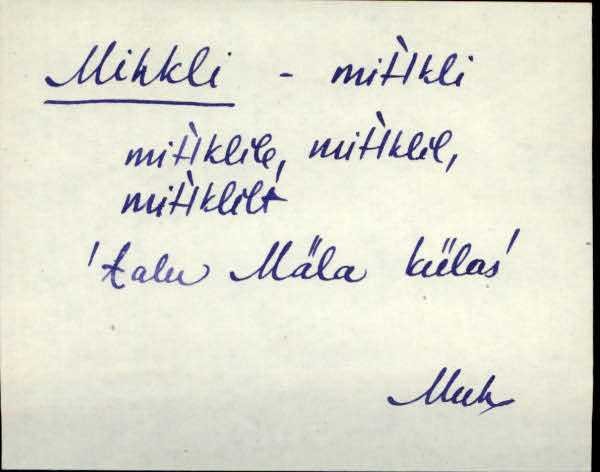 Mihkli - mìHkli
mìHklile, mìHklil,
mìHklilt
'talu Mäla külas'
Muh